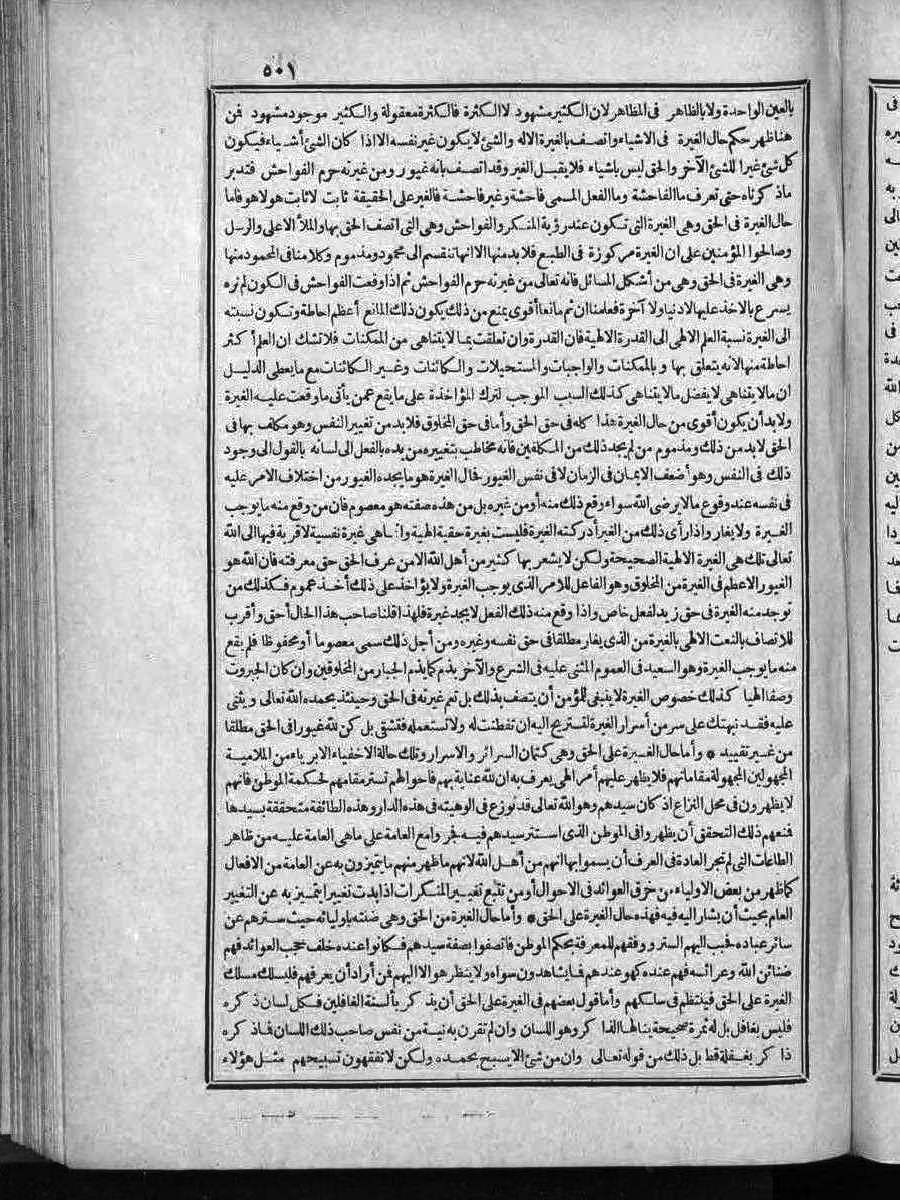 ٥٠١
بالعين الواحدة ولا بالظاهر في المظاهر لان الكثير مشهود لا الكثرة فالكثرة معقولة والكثير موجود مشهود فمن
هنا ظهر حكم حال الغيرة في الاشياء واتصف بالغيرة الاله والشئ لا يكون غير نفسه الا اذا كان الشئ أشياء فيكون
كل شئ غيرا للشئ الآخر والحق ليس باشياء فلا يقبل الغير وقد اتصف بانه غيور ومن غيرته حرم الفواحش فتدبر
ماذكرناه حتى تعرف ما الفاحشة وما الفعل المسمى فاحشة وغير فاحشة فالغير على الحقيقة ثابت لا ثابت هو لا هو فاما
حال الغيرة في الحق وهي الغيرة التي تكون عند رؤية المنكر والفواحش وهي التي اتصف الحق بها والملأ الاعلى والرسل
وصالحوا المؤمنين على ان الغيرة مركوزة في الطبع فلا بد منها الا انها تنقسم الى محمود ومذموم وكلامنا في المحمود منها
وهي الغيرة في الحق وهي من أشكل المسائل فانه تعالى من غيرته حرم الفواحش ثم اذا وقعت الفواحش في الكون لم نره
يسرع بالاخذ عليها لا دنيا ولا آخرة فعلمنا ان ثم مانعا أقوى يمنع من ذلك يكون ذلك المانع أعظم احاطة وتكون نسبته
الى الغيرة نسبة العلم الالهي الى القدرة الالهية فان القدرة وان تعلقت بما لا يتناهى من الممكنات فلا تشك ان العلم أكثر
احاطة منها لانه يتعلق بها وبالممكنات والواجبات والمستحيلات والكائنات وغير الكائنات مع ما يعطي الدليل
ان ما لا يتناهى لا يفضل ما لا يتناهى كذلك السبب الموجب لترك المؤاخذة على ما يقع عمن يأتي ما وقعت عليه الغيرة
ولا بد أن يكون أقوى من حال الغيرة هذا كله في حق الحق وأما في حق المخلوق فلا بد من تغيير النفس وهو مكلف بها في
الحق لا بد من ذلك ومذموم من لم يجد ذلك من المكلفين فانه مخاطب بتغييره من يده بالفعل الى لسانه بالقول الى وجود
ذلك في النفس وهو أضعف الايمان في الزمان لا في نفس الغيور فحال الغيرة هو ما يجده الغيور من اختلاف الامر عليه
في نفسه عند وقوع ما لا يرضى الله سواء وقع ذلك منه أو من غيره بل من هذه صفته هو معصوم فان من وقع منه ما يوجب
الغيرة ولا يغار واذا رأى ذلك من الغير أدركته الغيرة فليست بغيرة حقية الهية وانما هي غيرة نفسية لا قربة فيها الى الله
تعالى تلك هي الغيرة الالهية الصحيحة ولكن لا يشعر بها كثير من أهل الله الا من عرف الحق حق معرفته فان الله هو
الغيور الاعظم في الغيرة من المخلوق وهو الفاعل للامر الذي يوجب الغيرة ولا يؤاخذ على ذلك أخذ عموم فكذلك من
توجد منه الغيرة في حق زيد لفعل خاص واذا وقع منه ذلك الفعل لا يجد غيرة فلهذا قلنا صاحب هذا الحال أحق وأقرب
للاتصاف بالنعت الالهي بالغيرة من الذي يغار مطلقا في حق نفسه وغيره ومن أجل ذلك سمى معصوما أو محفوظا فلم يقع
منه ما يوجب الغيرة وهو السعيد في العموم المثنى عليه في الشرع والآخر يذم كما يذم الجبار من المخلوقين وان كان الجبروت
وصفا الهيا كذلك خصوص الغيرة لا ينبغي للمؤمن أن يتصف بذلك بل تعم غيرته في الحق وحينئذ يحمده الله تعالى ويثنى
عليه فقد نبهتك على سر من أسرار الغيرة لتستريح اليه ان تفطنت له ولا تستعمله فتشقى بل كن لله غيورا في الحق مطلقا
من غير تقييد * وأما حال الغيرة على الحق وهي كتمان السرائر والاسرار وتلك حالة الاخفياء الابرياء من الملامية
المجهولين المجهولة مقاماتهم فلا يظهر عليهم أمر الهي يعرف به ان لله عناية بهم فاحوالهم تستر مقامهم لحكمة الموطن فانهم
لا يظهرون في محل النزاع اذ كان سيدهم وهو الله تعالى قد نوزع في الوهيته في هذه الدار وهذه الطائفة متحققة بسيدها
فمنعهم ذلك التحقق أن يظهروا في الموطن الذي استتر سيدهم فيه فجروا مع العامة على ما هي العامة عليه من ظاهر
الطاعات التي لم تجر العادة في العرف أن يسموا بها انهم من أهل الله لانهم ما ظهر منهم ما يتميزون به عن العامة من الافعال
كما ظهر من بعض الاولياء من خرق العوائد في الاحوال أو من تتبع تغيير المنكرات اذا بدت تغييرا يتميز به عن التغيير
العام بحيث أن يشار اليه فيه فهذه حال الغيرة على الحق * وأما حال الغيرة من الحق وهي ضنته باوليائه حيث سترهم عن
سائر عباده فحبب اليهم الستر ووفقهم للمعرفة بحكم الموطن فاتصفوا بصفة سيدهم فكانوا عنده خلف حجب العوائد فهم
ضنائن الله وعرائسه فهم عنده كهو عندهم فما يشاهدون سواه ولا ينظر هو الا اليهم فمن أراد أن يعرفهم فليسلك مسلك
الغيرة على الحق فينتظم في سلكهم وأما قول بعضهم في الغيرة على الحق أن يذكر بألسنة الغافلين فكل لسان ذكره
فليس بغافل بل له ثمرة صحيحة ينالها الذاكر وهو اللسان وان لم تقرن به نية من نفس صاحب ذلك اللسان فما ذكره
ذاكر بغفلة قط بل ذلك من قوله تعالى وان من شئ الا يسبح بحمده ولكن لا تفقهون تسبيحهم مثل هؤلاء